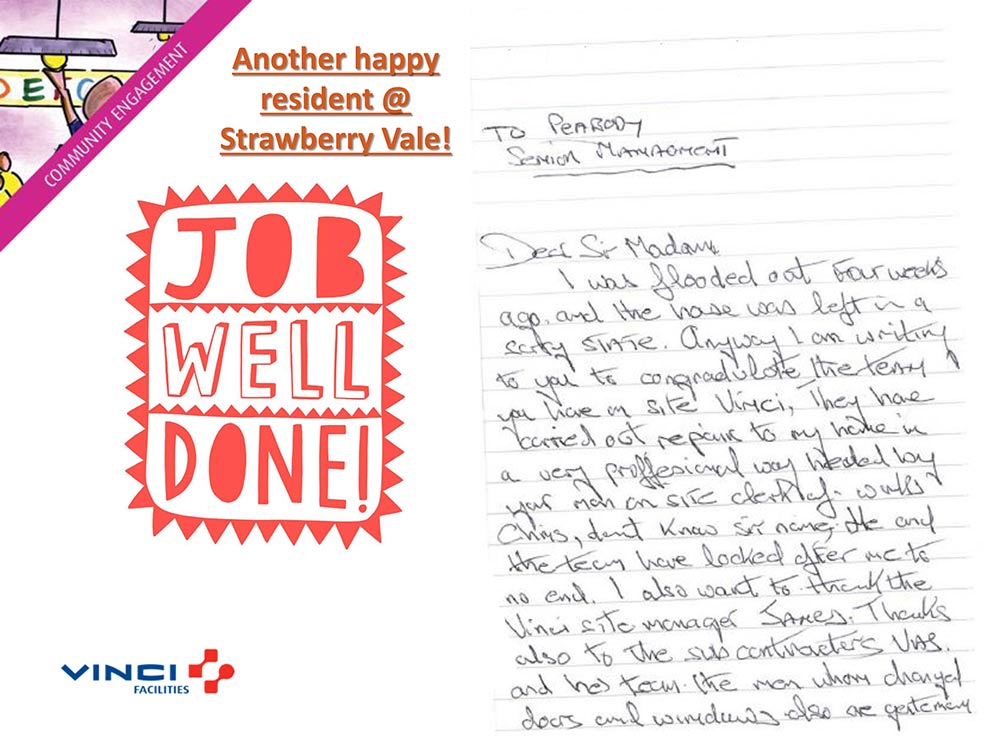 COMMUNITY ENGAGEMENT
Another happy
resident @
Strawberry Vale!
JOB
WELL
DONE!
VINCI
FACILITIES
TO PEABODY
SENIOR MANAGMENT
Dear Sir Madam
I was flooded out Four weeks
ago. and the house was left in a
state. Anyway I am writing
to you to congradulate the team
you have on site Vinci, They have
carried out repairs to my home in
a very proffesional way headed by
your man on site clerk of works
Chris, dont know sir name, He and
the team have looked after me to
no end. I also want to thank the
Vinci site manager JAMES. Thanks
also to the sub contracters
and team. the men whom changed
doors and windows also are